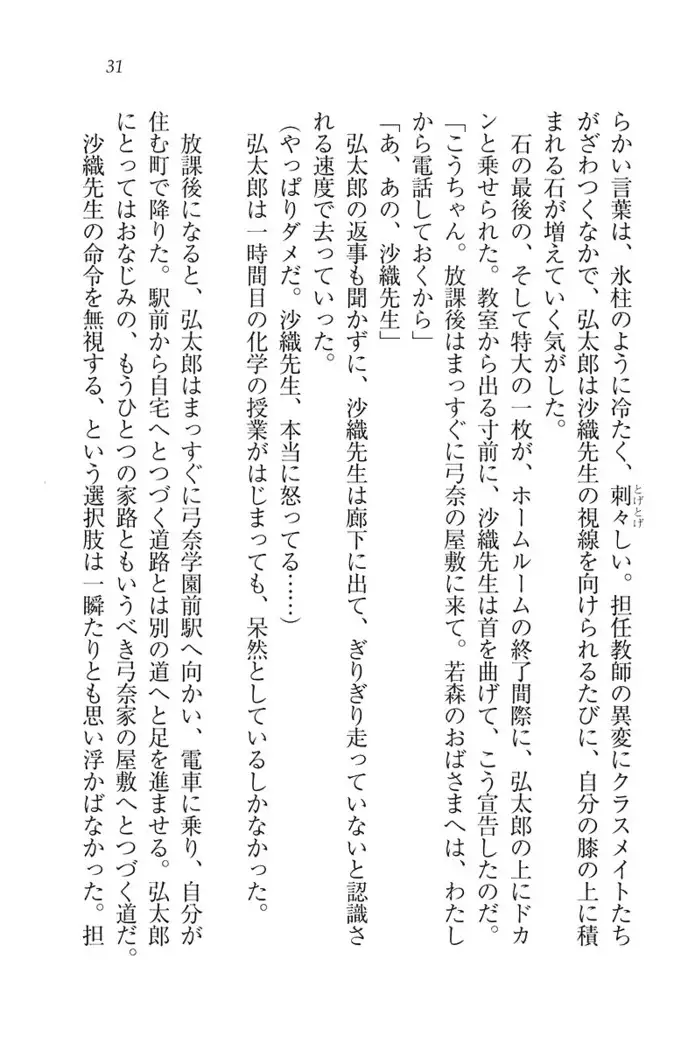 31
らかい言葉は、氷柱のように冷たく、刺々しい。担任教師の異変にクラスメイトたち
とげとげ
がざわつくなかで、弘太郎は沙織先生の視線を向けられるたびに、自分の膝の上に積
まれる石が増えていく気がした。
石の最後の、そして特大の一枚が、ホームルームの終了間際に、弘太郎の上にドカ
ンと乗せられた。教室から出る寸前に、沙織先生は首を曲げて、こう宣告したのだ。
「こうちゃん。放課後はまっすぐに弓奈の屋敷に来て。若森のおばさまへは、わたし
から電話しておくから」
「あ、あの、沙織先生」
弘太郎の返事も聞かずに、沙織先生は廊下に出て、ぎりぎり走っていないと認識さ
れる速度で去っていった。
(やっぱりダメだ。沙織先生、本当に怒ってる……)
弘太郎は一時間目の化学の授業がはじまっても、呆然としているしかなかった。
放課後になると、弘太郎はまっすぐに弓奈学園前駅へ向かい、電車に乗り、自分が
住む町で降りた。駅前から自宅へとつづく道路とは別の道へと足を進ませる。弘太郎
にとってはおなじみの、もうひとつの家路ともいうべき弓奈家の屋敷へとつづく道だ。
沙織先生の命令を無視する、という選択肢は一瞬たりとも思い浮かばなかった。担